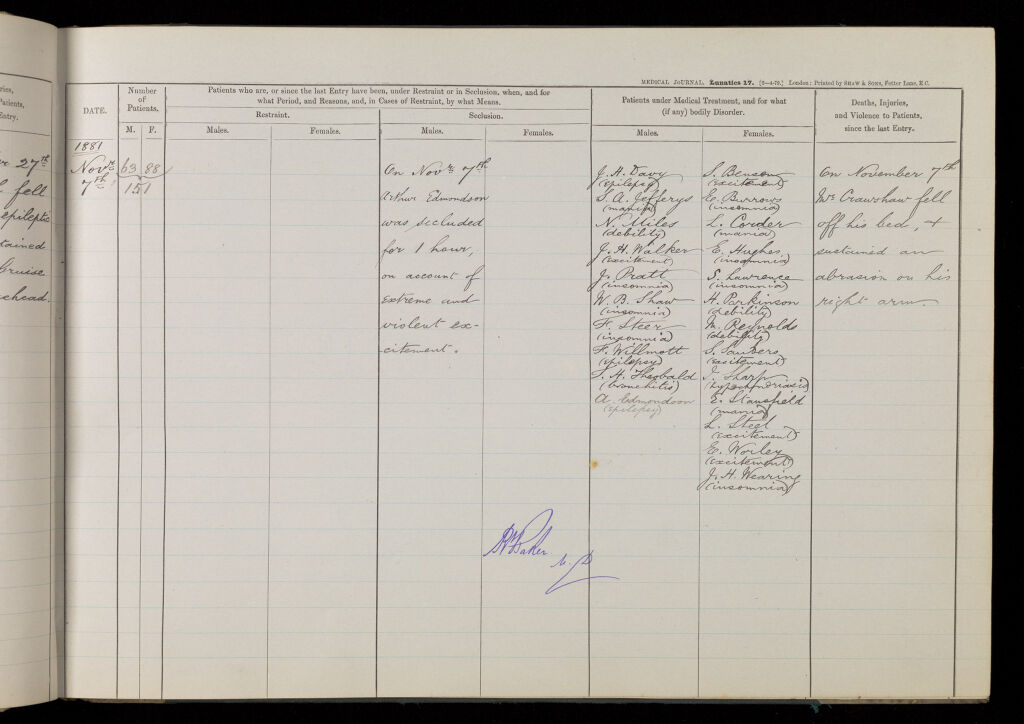 MEDICAL JOURNAL. Lunatics 17. [8—4-79.] London: Printed by SHAW & SONS, Fetter Lane, E.C.
DATE.
Number
of
Patients.
M. F.
Patients who are, or since the last Entry have been, under Restraint or in Seclusion, when, and for
what Period, and Reasons, and, in Cases of Restraint, by what Means.
Restraint.
Seclusion.
Males. Females. Males. Females.
Patients under Medical Treatment, and for what
(if any) bodily Disorder.
Males. Females.
Deaths, Injuries,
and Violence to Patients,
since the last Entry.
ries,
Patients,
Entry.
27th
fell
epileptic
tained
bruise
ehead.
1881
Novr 63 88
7th 151
On Novr 7th
Arthur Edmondson
was secluded
for 1 hour,
on account of
extreme and
violent ex-
citement.
J. H. Davy
(epilepsy)
S. A. Jefferys
(mania)
N. Miles
(debility)
J. H. Walker
(excitement)
J. Pratt
(insomnia)
W. B. Shaw
(insomnia)
F. Steer
(insomnia)
F. Willmott
(epilepsy)
T. H. Theobald
(bronchitis)
A. Edmondson
(epilepsy)
S. Benson
(excitement)
E. Burrows
(insomnia)
L. Corder
(mania)
E. Hughes
(insomnia)
S. Lawrence
(insomnia)
H. Parkinson
(debility)
M. Reynolds
(debility)
S. Saunders
(excitement)
J. Sharp
(hypochondriasis)
E. Stansfield
(mania)
L. Steel
(excitement)
E. Worley
(excitement)
J. H. Wearing
(insomnia)
On November 7th
Mr Crawshaw fell
off his bed, &
sustained an
abrasion on his
right arm.
Baker
M.D